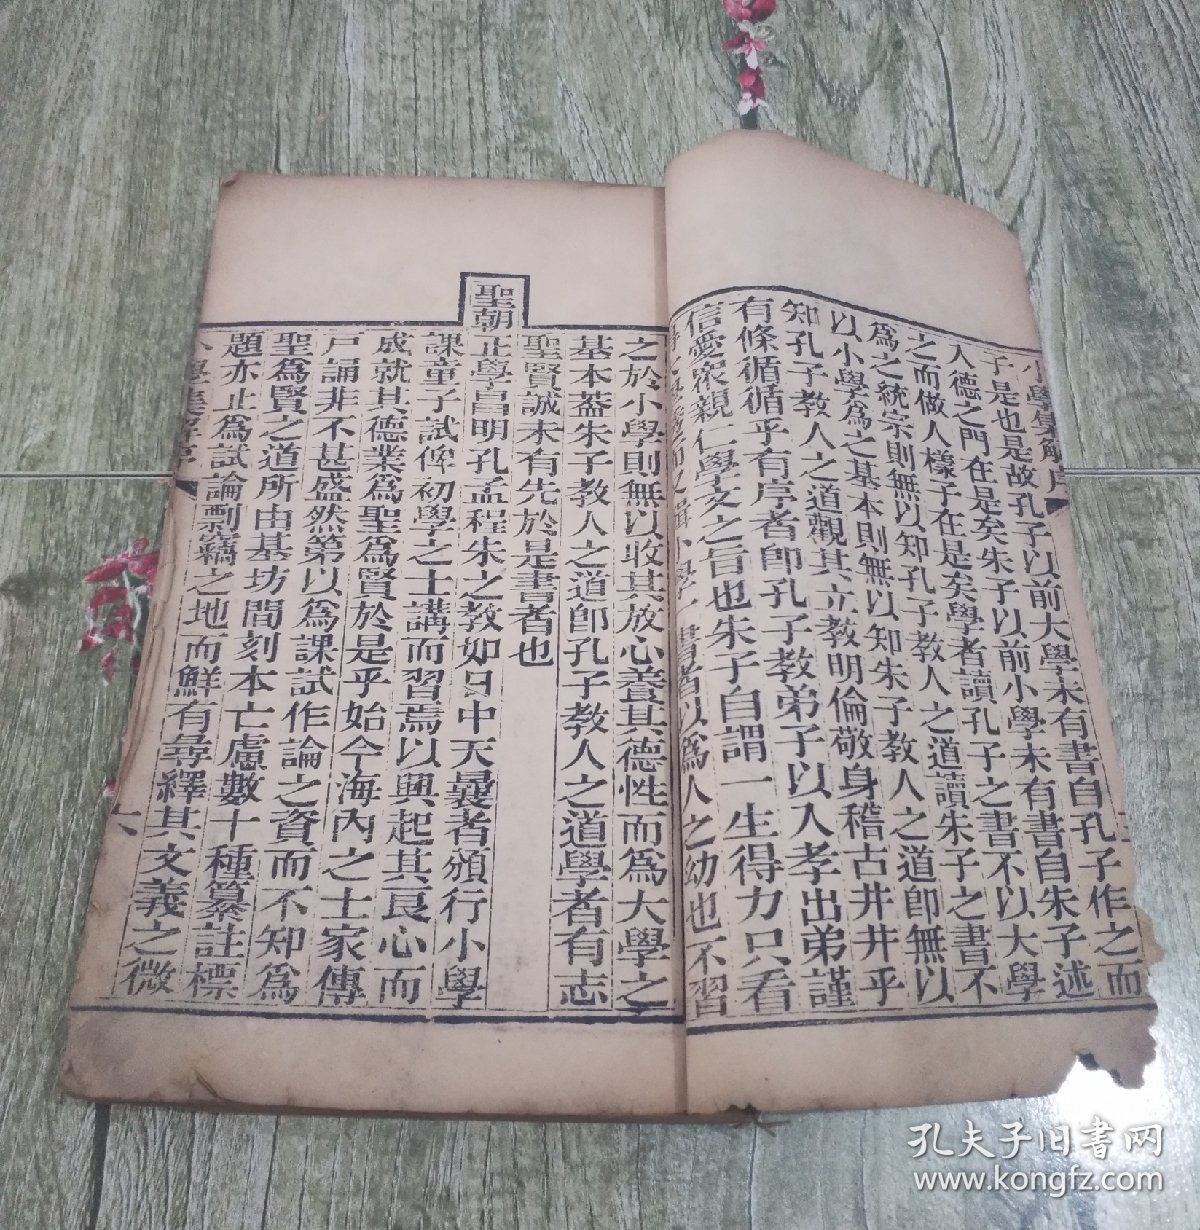 小學集解序
子是也是故孔子以前大學未有書自孔子作之而
入德之門在是矣朱子以前小學未有書自朱子述
之而做人樣子在是矣學者讀孔子之書不以大學
為之統宗則無以知孔子教人之道讀朱子之書不
以小學為之基本則無以知朱子教人之道即無以
知孔子教人之道觀其立教明倫敬身稽古井井乎
有條循循乎有序者即孔子教弟子以入孝出弟謹
信愛眾親仁學文之旨也朱子自謂一生得力只看
小學一書者以為人之幼也不習
之於小學則無以收其放心養其德性而為大學之
基本蓋朱子教人之道即孔子教人之道學者有志
聖賢誠未有先於是書者也
聖朝正學昌明孔孟程朱之教如日中天曩者頒行小學
課童子試俾初學之士講而習焉以興起其良心而
成就其德業為聖為賢於是乎始今海內之士家傳
戶誦非不甚盛然第以為課試作論之資而不知為
聖為賢之道所由基坊間刻本亡慮數十種纂註標
題亦止為試論剽竊之地而鮮有尋繹其文義之微
小學集解序
六
孔夫子旧书网
www.kongfz.com